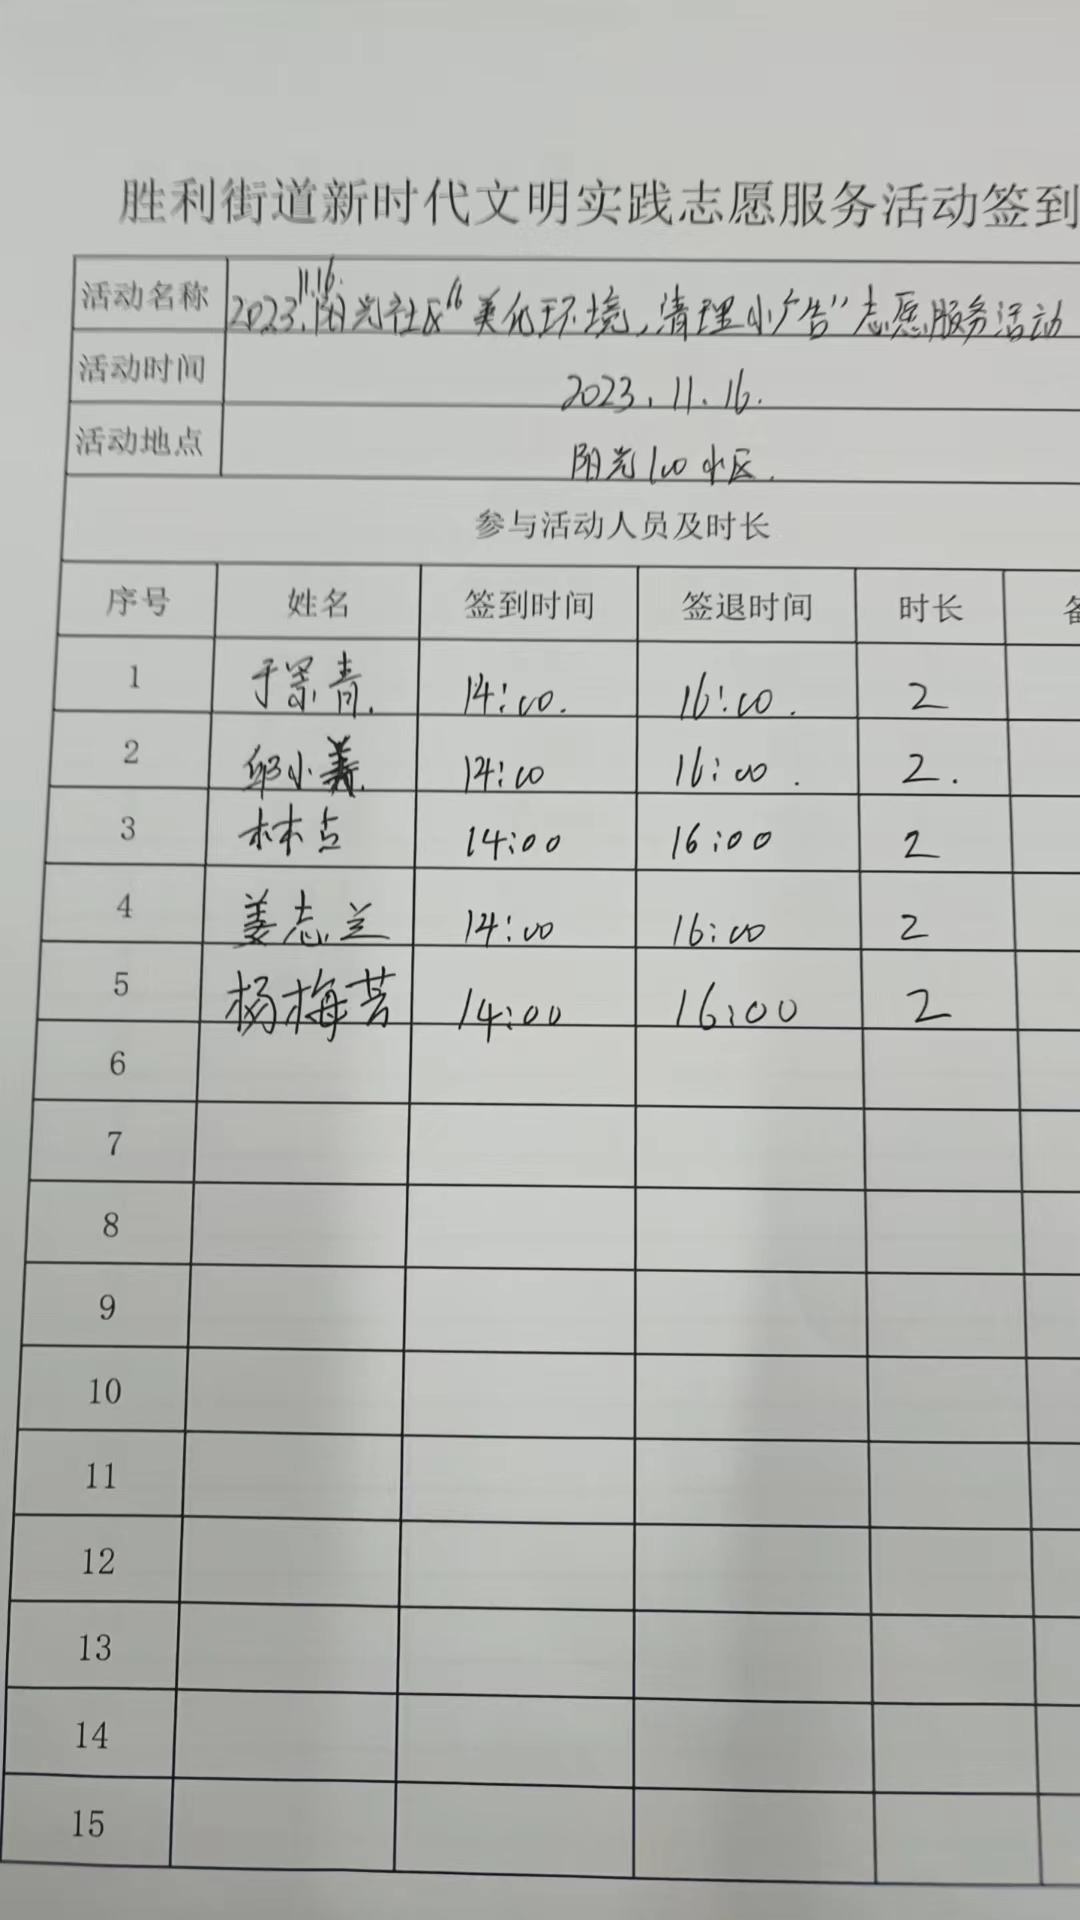 胜利街道新时代文明实践志愿服务活动签到
活动名称 2023.11.16.阳光社区“美化环境，清理小广告”志愿服务活动
活动时间 2023.11.16.
活动地点 阳光100小区.
参与活动人员及时长
序号 姓名 签到时间 签退时间 时长
1 于景青. 14:00. 16:00. 2
2 邱小義. 14:00 16:00. 2.
3 林占 14:00 16:00 2
4 姜志兰 14:00 16:00 2
5 杨梅芳 14:00 16:00 2
6
7
8
9
10
11
12
13
14
15